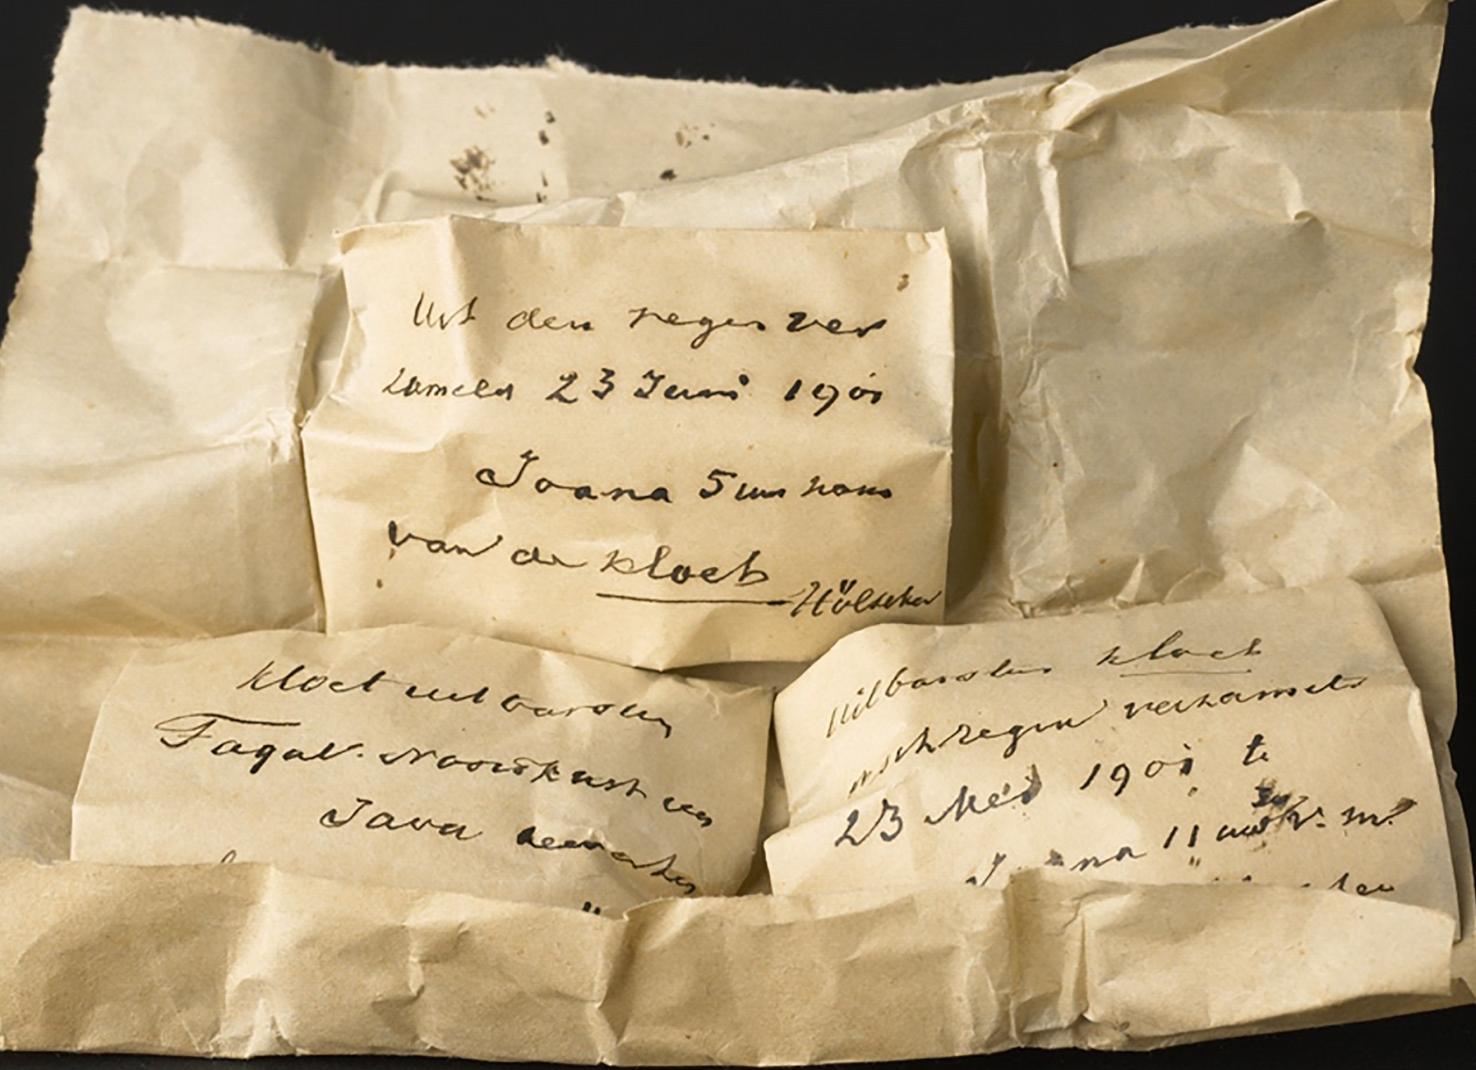 Uit den regen ver
zameld 23 Juni 1901
Joana 5 uur
van de Kloet
Hölscher
Kloet uitbarsting
Tagal. Noordkust van
Java
uitbarsten Kloet
asch regen verzameld
23 Mei 1901 te
11 uur